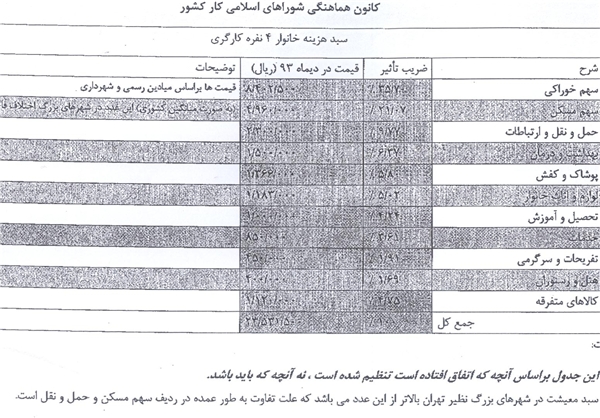 کانون هماهنگی شوراهای اسلامی کار کشور
سبد هزینه خانوار ۴ نفره کارگری
شرح ضریب تأثیر قیمت در دیماه ۹۳ (ریال) توضیحات
سهم خوراکی ۸/۴۰۲/۵۰۰ قیمت ها براساس میادین رسمی و شهرداری
سهم مسکن ٪ ۲۱/۰۷ ۴/۹۶۰/۰۰۰ (به صورت میانگین کشوری) این عدد در شهرهای بزرگ اختلاف
حمل و نقل و ارتباطات ٪ ۹/۷۷ ۲/۳۰۰/۰۰۰
بهداشت و درمان ٪ ۶/۳۷ ۱/۵۰۰/۰۰۰
پوشاک و کفش ٪ ۵/۸۰ ۱/۳۶۶/۰۰۰
لوازم و اثاث خانوار ٪ ۵/۰۲ ۱/۱۸۳/۰۰۰
تحصیل و آموزش ٪ ۴/۲۴
٪ ۳/۶۱ ۸۵۰/۰۰۰
تفریحات و سرگرمی ٪ ۱/۹۱ ۴۵۰/۰۰۰
هتل و رستوران ٪ ۱/۶۹ ۴۰۰/۰۰۰
کالاهای متفرقه ٪ ۴/۷۵ ۱/۱۲۰/۰۰۰
جمع کل
ت:
این جدول براساس آنچه که اتفاق افتاده است تنظیم شده است ، نه آنچه که باید باشد.
سبد معیشت در شهرهای بزرگ نظیر تهران بالاتر از این عدد می باشد که علت تفاوت به طور عمده در ردیف سهم مسکن و حمل و نقل است.